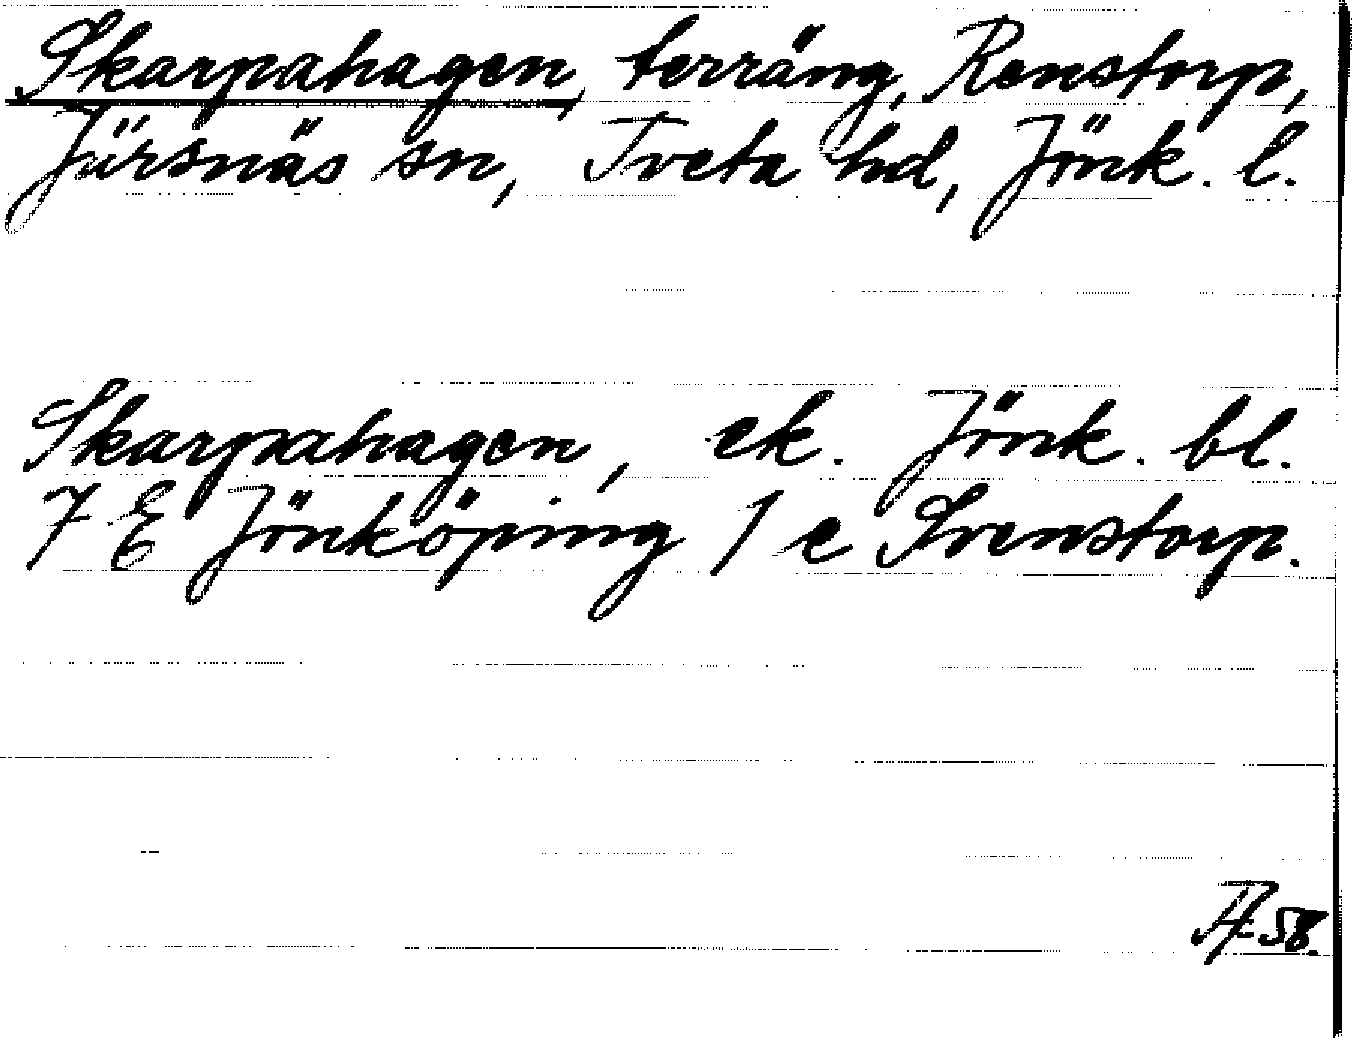 Skarpahagen, terräng, Renstorp,
Järsnäs sn, Tveta hd, Jönk. l.
Skarpahagen, ek. Jönk. bl.
7 E Jönköping 1 e Svenstorp.
58.